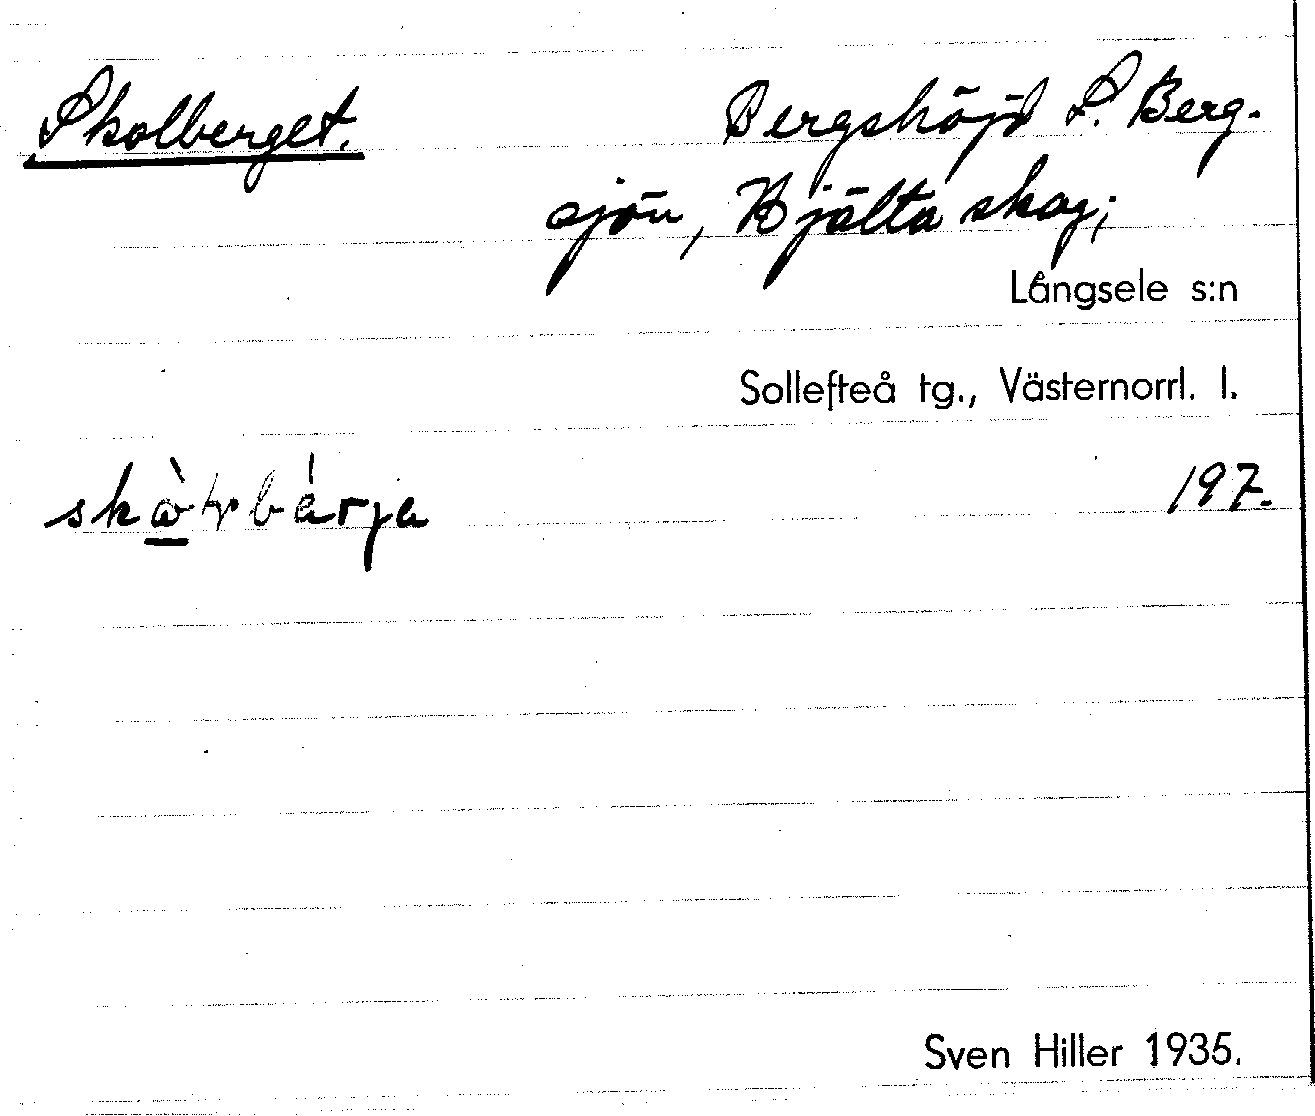 Skolberget. Bergshöjd S. Berg-
sjön, Hjälta skog;
Långsele s:n
Sollefteå tg., Västernorrl. l.
197.
Sven Hiller 1935.